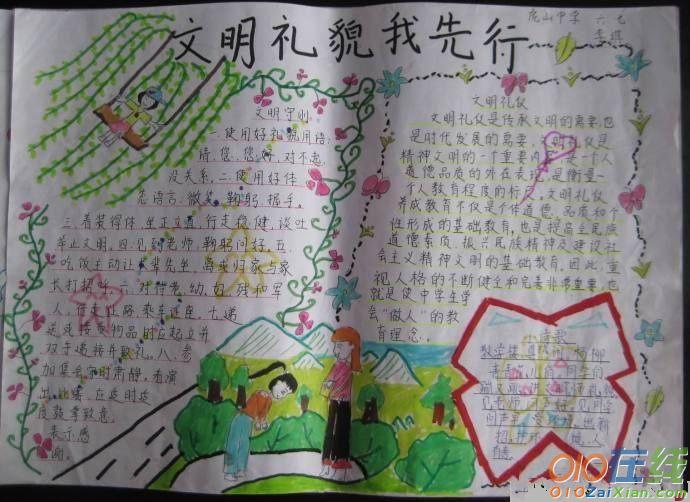 文明礼貌我先行
虎山中学 六七
文明守则
一、使用好礼貌用语:
请、您、您好、对不起、
没关系、二、使用好体
态语言:微笑、鞠躬、握手、
三、着装得体、坐正立直、行走稳健、谈吐
举止文明、四、见到老师、鞠躬问好、五、
吃饭主动让长辈先坐、离家归家与家
长打招呼、六、对待老、幼、妇、残和军
人、行走让路、乘车让座、七、递
送或接受物品时应起立并
双手递接并致礼、八、参
加集会时肃静、看演
出、比赛、应适时适
度鼓掌致意、
表示感
谢。
文明礼仪
文明礼仪是传承文明的需要,也
是时代发展的需要,文明礼仪是
精神文明的一个重要内容,是一个人
道德品质的外在表现,是衡量一
个人教育程度的标尺。文明礼仪
养成教育不仅是个体道德、品质和个
性形成的基础教育,也是提高全民族
道德素质、振兴民族精神及建设社
会主义精神文明的基础教育,因此,重
视人格的不断健全和完善非常重要,也
就是使中学生学
会"做人"的教
育理念。
小诗歌
见老师 好,见同学
问声早
010在线
010ZaiXian.com